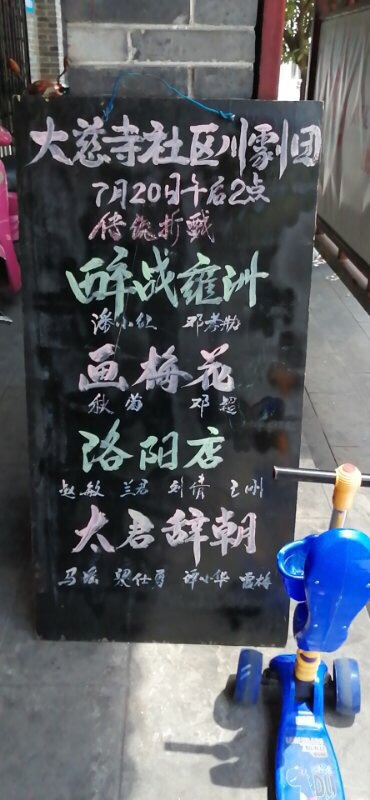 大慈寺社区川劇团
7月20日午后2点
传统折戏
醉战雍洲
潘小红 邓孝勤
画梅花
秋菊 邓超
洛阳店
赵敏 兰君 刘倩 王州
太君辞朝
马瑶 梁仕勇 谭小华 霞梅